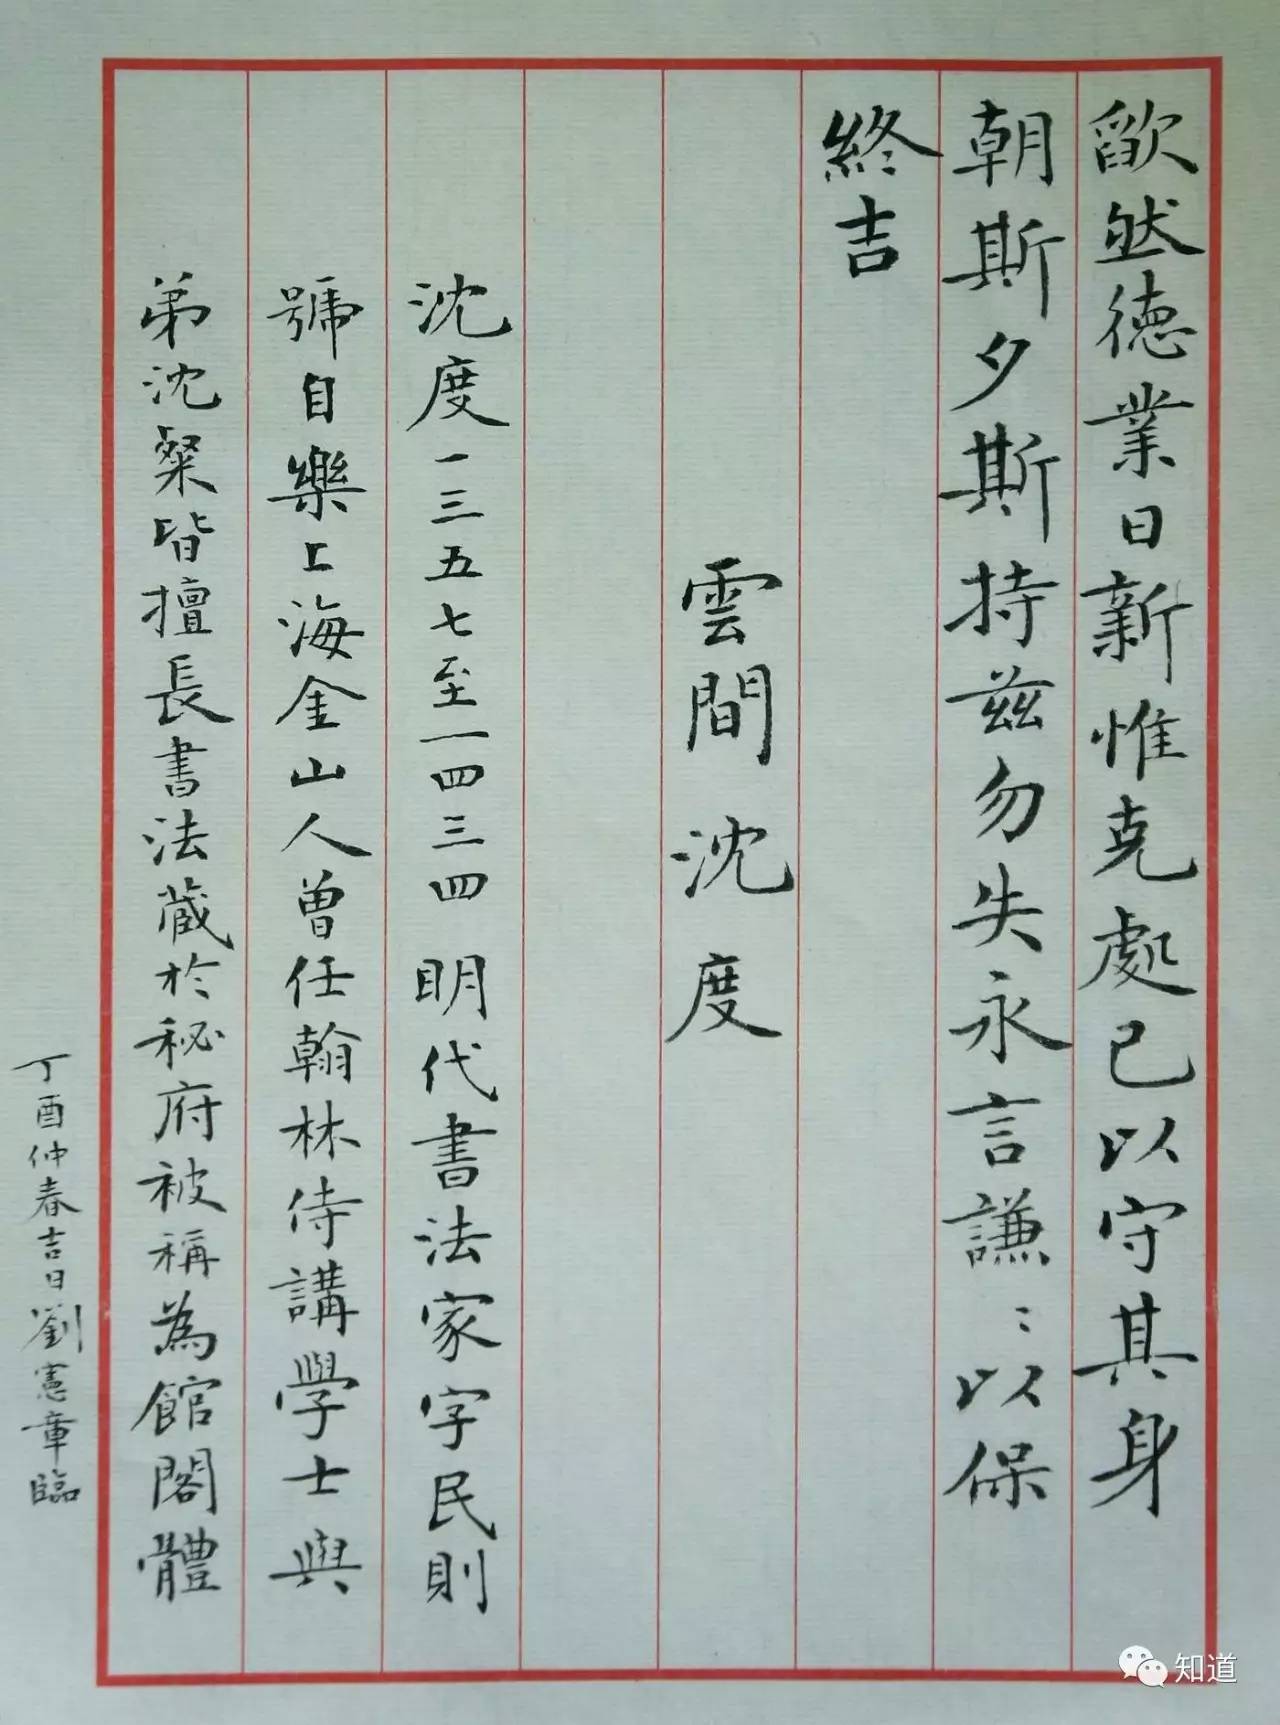 欿然德業日新惟克處己以守其身
朝斯夕斯持茲勿失永言謙〻以保
終吉
雲間沈度
沈度一三五七至一四三四 明代書法家字民則
號自樂上海金山人曾任翰林侍講學士與
弟沈粲皆擅長書法藏於秘府被稱為館閣體
丁酉仲春吉日劉憲章臨
知道